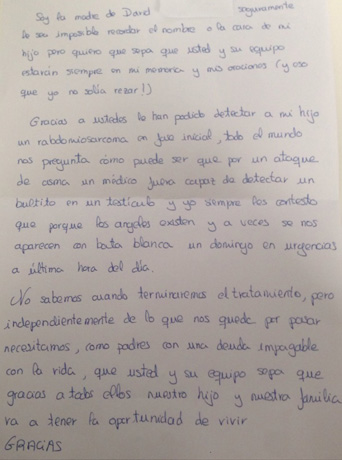 Soy la madre de David
seguramente
le sea imposible recordar el nombre o la cara de mi
hijo pero quiero que sepa que usted y su equipo
estarán siempre en mi memoria y mis oraciones (y eso
que yo no solía rezar!)
Gracias a ustedes le han podido detectar a mi hijo
un rabdomiosarcoma en fase inicial, todo el mundo
nos pregunta cómo puede ser que por un ataque
de asma un médico fuera capaz de detectar un
bultito en un testículo y yo siempre les contesto
que porque los angeles existen y a veces se nos
aparecen con bata blanca un domingo en urgencias
a última hora del día.
No sabemos cuando terminaremos el tratamiento, pero
independientemente de lo que nos quede por pasar
necesitamos, como padres con una deuda impagable
con la vida, que usted y su equipo sepa que
gracias a todos ellos nuestro hijo y nuestra familia
va a tener la oportunidad de vivir
GRACIAS